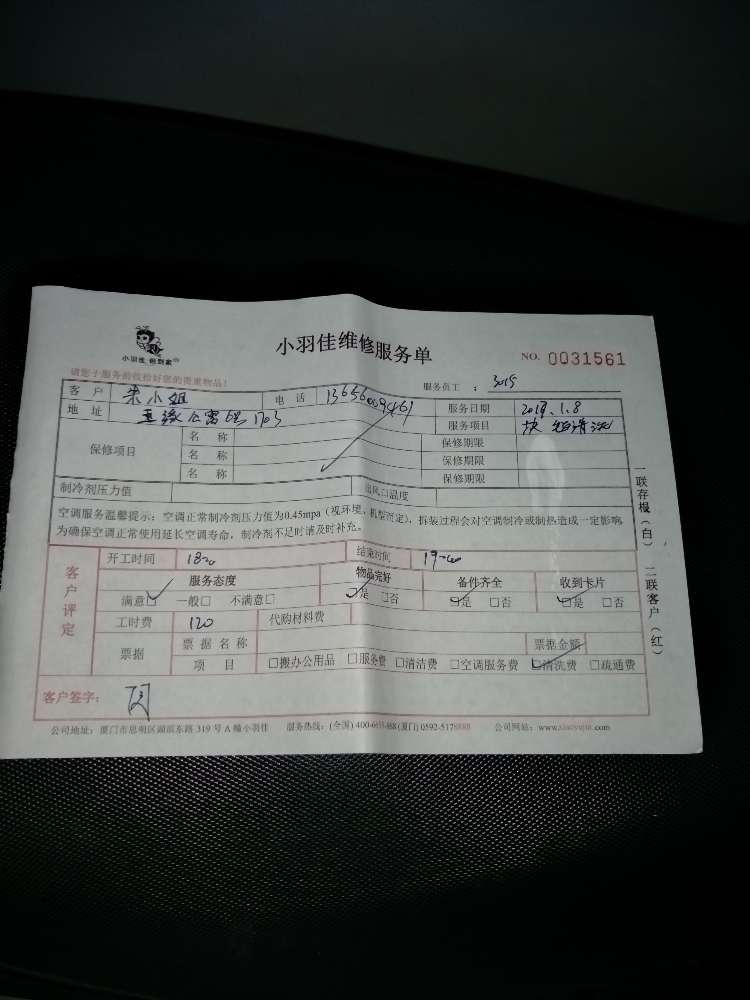 小羽佳 做到家
小羽佳维修服务单
NO. 0031561
请您于服务前收拾好您的贵重物品!
服务员工 : 3019
客户 朱小姐 电话
服务日期 2019.1.8
地址 公寓 1703
服务项目 清洗
保修项目
名称 保修期限
名称 保修期限
名称 保修期限
制冷剂压力值 出风口温度
空调服务温馨提示:空调正常制冷剂压力值为0.45mpa(视环境、机型而定),拆装过程会对空调制冷或制热造成一定影响,
为确保空调正常使用延长空调寿命,制冷剂不足时请及时补充。
客户评定
开工时间 结束时间
服务态度 物品完好 备件齐全 收到卡片
满意□ 一般□ 不满意□ □是 □否 □是 □否 □是 □否
工时费 120 代购材料费
票据 票据名称 票据金额
项目 □搬办公用品 □服务费 □清洁费 □空调服务费 □清洗费 □疏通费
客户签字:
公司地址:厦门市思明区湖滨东路 319 号 A 幢小羽佳 服务热线:(全国) (厦门) 0592-5178888 公司网站:www.xiaoyujia.com
一联存根(白) 二联客户(红)